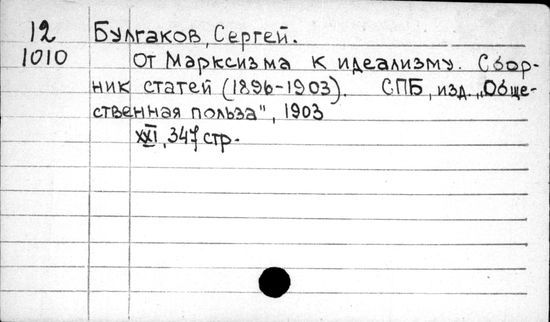 12 Булгаков, Сергей.
1010 От Марксизма к идеализму. Сбор-
ник статей (1896-1903). СПБ, изд. „Обще-
ственная польза", 1903
XXI, 347 стр.